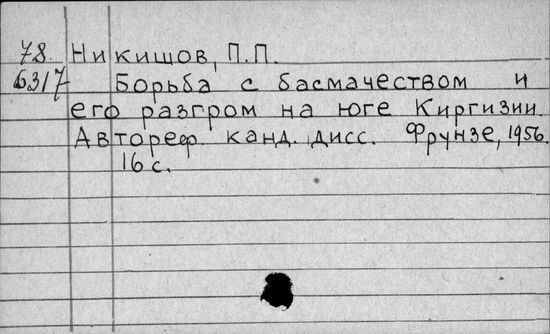 78. Никишов, П.П.
6317 Борьба с басмачеством и
его разгром на юге Киргизии.
Автореф. канд. дисс. Фрунзе, 1956.
16 с.